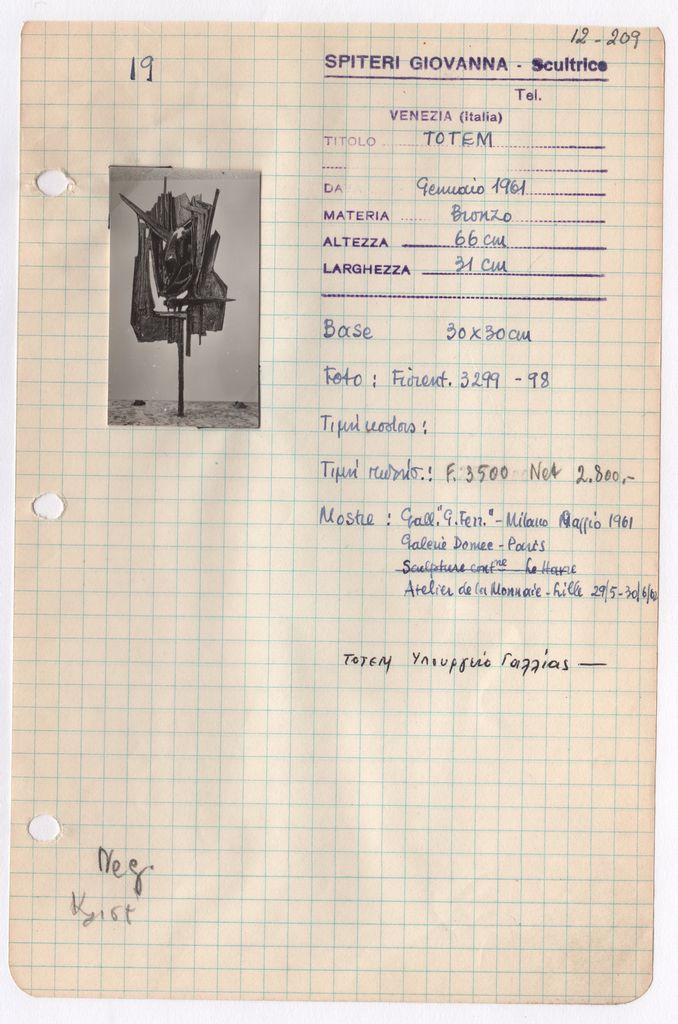 12-209
19
SPITERI GIOVANNA - Scultrice
Tel.
VENEZIA (Italia)
TITOLO TOTEM
DA Gennaio 1961
MATERIA Bronzo
ALTEZZA 66 cm
LARGHEZZA 31 cm
Base 30x30cm
Foto : Fiorent. 3299 - 98
Τιμή κοστους :
Τιμή : F. 3500 Net 2.800,-
Mostre : Gall. "G. Ferr." - Milano Maggio 1961
Galerie Domec - Paris
Sculpture contne Le Havre
Atelier de la Monnaie - Lille 29/5-30/6/62
TOTEM Υπουργείο Γαλλίας —
Neg.